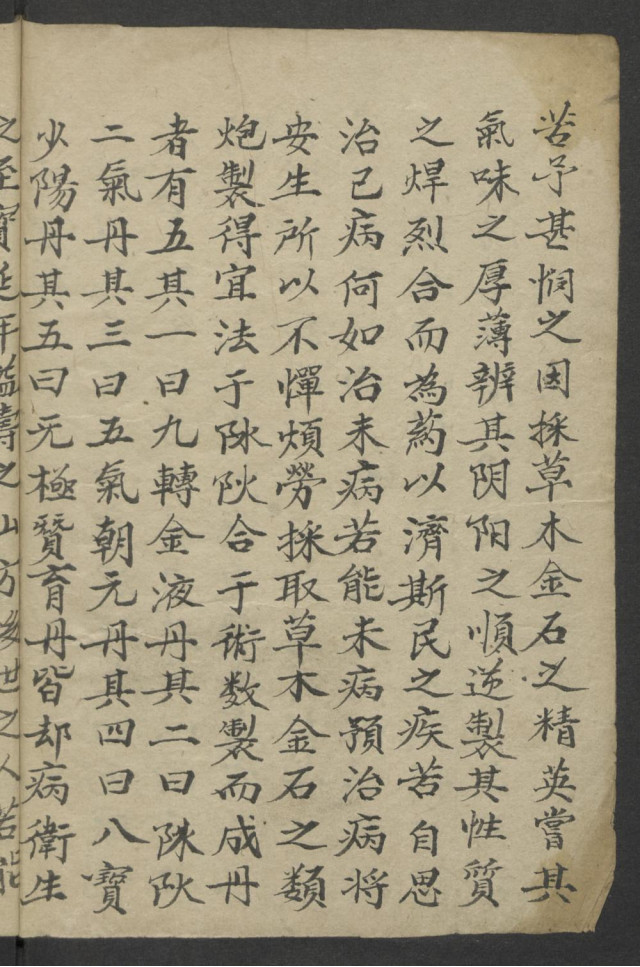 苦予甚悯之因採草木金石之精英嘗其
氣味之厚薄辨其阴阳之順逆製其性質
之焊烈合而為药以濟斯民之疾苦自思
治已病何如治未病若能未病預治病将
安生所以不憚煩勞採取草木金石之類
炮製得宜法于阥𫕥合于術数製而成丹
者有五其一曰九轉金液丹其二曰阥𫕥
二氣丹其三曰五氣朝元丹其四曰八寶
少陽丹其五曰无極贊育丹皆却病衛生
之至寶延年益壽之山方後世之人若能